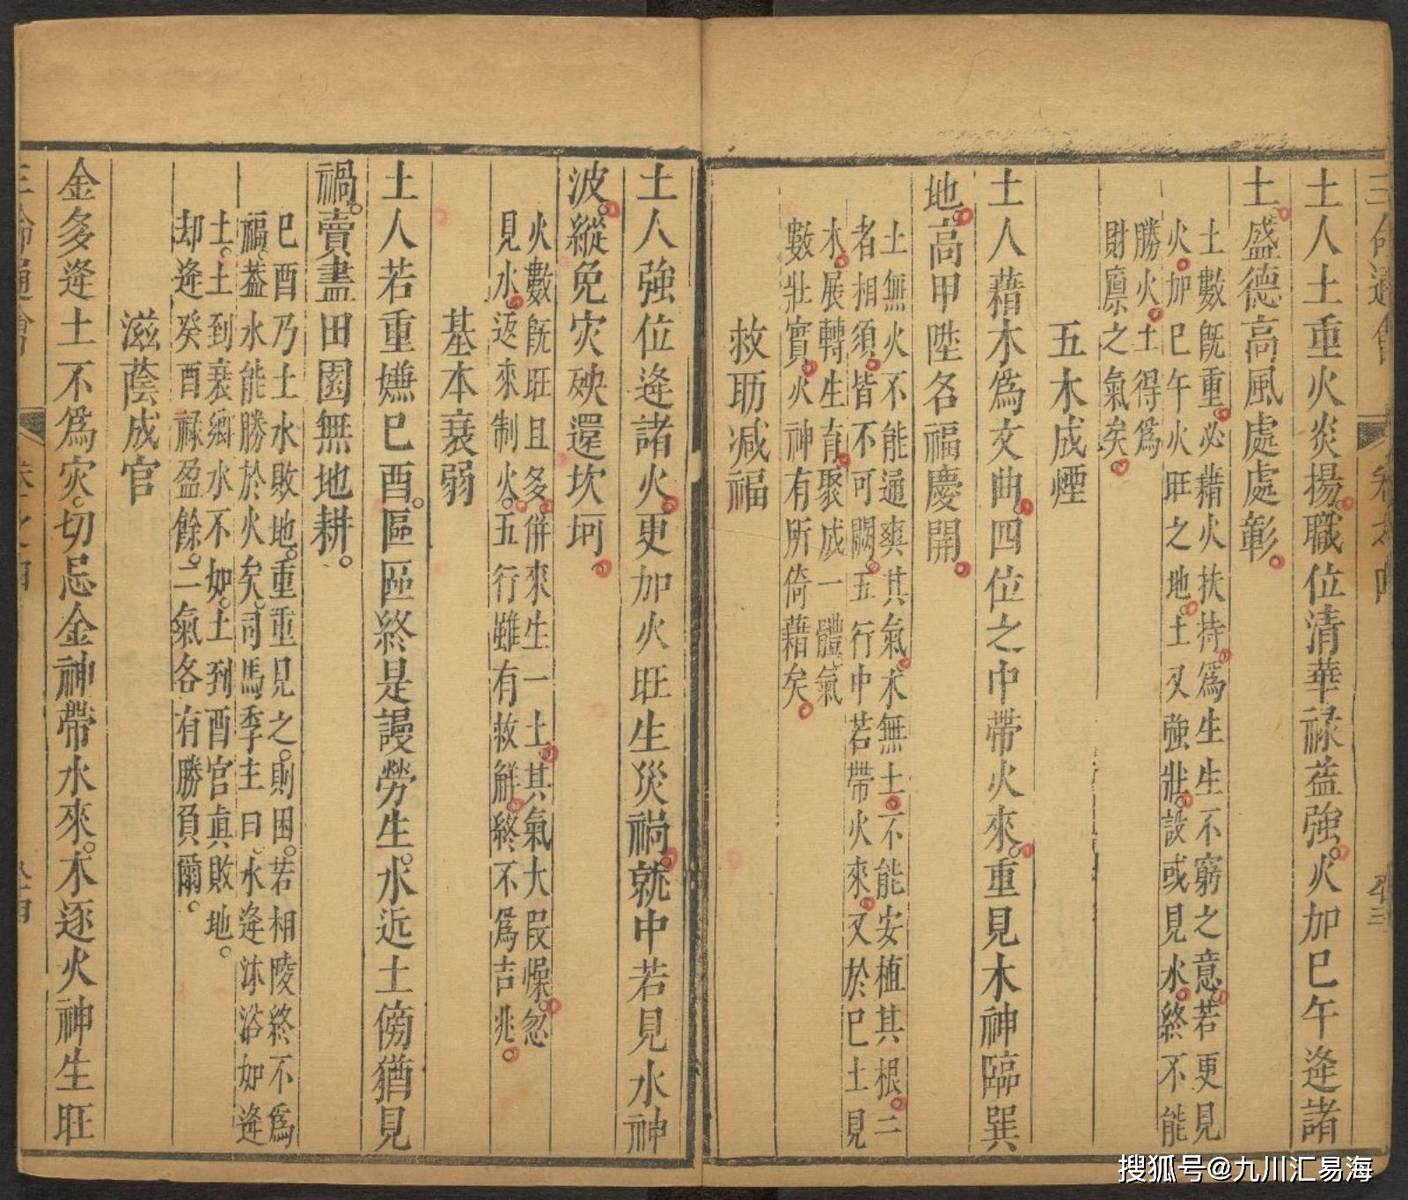 三命通會
土人土重火炎揚職位清華祿葢強火加巳午逢諸
土盛德高風處處彰
土數旣重必藉火扶持爲生生不窮之意若更見
火加巳午火旺之地土又強壯設或見水終不能
勝火土得爲
財廪之氣矣
五木成煙
土人藉木爲文曲四位之中帶火來重見木神臨巽
地高甲陞名福慶開
土無火不能通爽其氣木無土不能安植其根二
者相須皆不可闕五行中若帶火來又於巳土見
木展轉生育聚成一體氣
數壯實火神有所倚藉矣
救助减福
土人強位逢諸火更加火旺生災禍就中若見水神
波縱免灾殃還坎坷
火數旣旺且多併來生一土其氣大段燥忽
見水返來制火五行雖有救解終不爲吉兆
基本衰弱
土人若重嫌巳酉區區終是謾勞生水近土傍猶見
禍賣盡田園無地耕
巳酉乃土水敗地重重見之則困若相陵終不爲
福葢水能勝於火矣司馬季主曰水逢沐浴如逢
土土到衰鄉水不如土到酉宫真敗地
却逢癸酉祿盈餘二氣各有勝負爾
滋蔭成官
金多逢土不爲灾切忌金神帶水來木逐火神生旺
搜狐号@九川汇易海